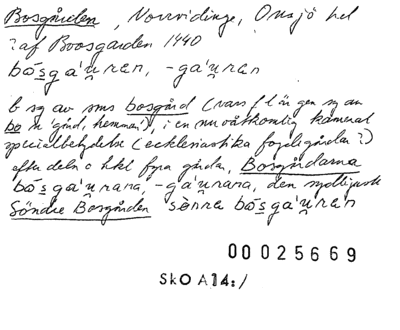 Bosgården, Norrvidinge, Onsjö hd
? af Boosgarden 1440
bo̊sga'u̲ran, -ga'u̲ran
b sg av sms bosgård (vars f l är gen sg av
bo n 'gård, hemman'), i en nu kameral
specialbetydelse (ecklesiastika fogdegården?)
efter deln o hkl fyra gårdar, Bosgårdarna
bo̊sga'u̲rana, -ga'u̲rana, den sydligaste
Söndre Bosgården sènra bo̊sga'u̲ran
00025669
SkO A14:/